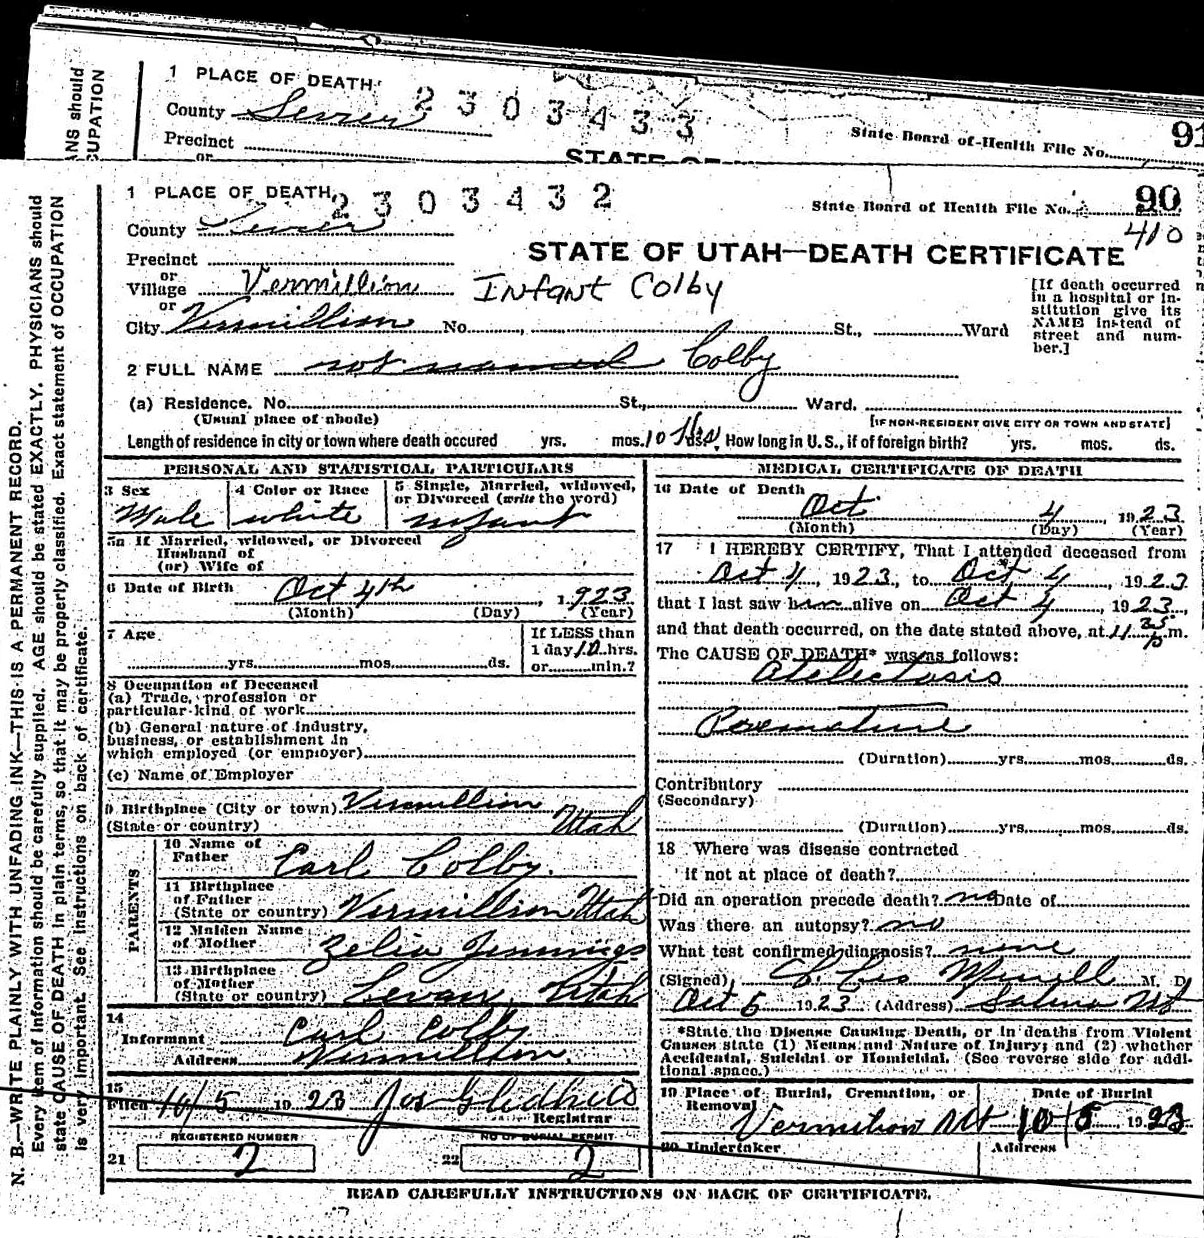 ANS should
CUPATION
1 PLACE OF DEATH
2303433
County Sevier
State Board of Health File No. 91
Precinct
or
STATE OF
N. B.—WRITE PLAINLY WITH UNFADING INK—THIS IS A PERMANENT RECORD.
Every item of information should be carefully supplied. AGE should be stated EXACTLY. PHYSICIANS should
state CAUSE OF DEATH in plain terms, so that it may be properly classified. Exact statement of OCCUPATION
is very important. See instructions on back of certificate.
1 PLACE OF DEATH
2303432
State Board of Health File No. 90
410
County Sevier
STATE OF UTAH—DEATH CERTIFICATE
Precinct
or
Village Vermillion Infant Colby
or
City Vermillion No. St., Ward
[If death occurred
in a hospital or in-
stitution give its
NAME instead of
street and num-
ber.]
2 FULL NAME not named Colby
(a) Residence. No. St., Ward.
(Usual place of abode) [IF NON-RESIDENT GIVE CITY OR TOWN AND STATE]
Length of residence in city or town where death occured yrs. mos. 10 Hrs ds. How long in U. S., if of foreign birth? yrs. mos. ds.
PERSONAL AND STATISTICAL PARTICULARS
3 Sex Male
4 Color or Race white
5 Single, Married, widowed,
or Divorced (write the word)
infant
5a If Married, widowed, or Divorced
Husband of
(or) Wife of
6 Date of Birth Oct 4th 1923
(Month) (Day) (Year)
7 Age yrs. mos. ds.
If LESS than
1 day 10 hrs.
or min.?
8 Occupation of Deceased
(a) Trade, profession or
particular kind of work
(b) General nature of industry,
business, or establishment in
which employed (or employer)
(c) Name of Employer
9 Birthplace (City or town) Vermillion
(State or country) Utah
PARENTS
10 Name of
Father Carl Colby.
11 Birthplace
of Father
(State or country) Vermillion Utah
12 Maiden Name
of Mother Zelia Jennings
13 Birthplace
of Mother
(State or country) Levan, Utah
14
Informant Carl Colby
Address Vermillion.
15
Filed 10/5 1923 Jos Gledhill
Registrar
REGISTERED NUMBER
21 2
NO OF BURIAL PERMIT
22 2
MEDICAL CERTIFICATE OF DEATH
16 Date of Death
Oct. 4, 1923
(Month) (Day) (Year)
17 I HEREBY CERTIFY, That I attended deceased from
Oct 4, 1923, to Oct 4, 1923
that I last saw him alive on Oct 4, 1923,
and that death occurred, on the date stated above, at 11 35 p m.
The CAUSE OF DEATH* was as follows:
Atelectasis
Premature
(Duration) yrs. mos. ds.
Contributory
(Secondary)
(Duration) yrs. mos. ds.
18 Where was disease contracted
if not at place of death?
Did an operation precede death? no Date of
Was there an autopsy? no
What test confirmed diagnosis? none
(Signed) Merrell M. D.
Oct 5 1923 (Address) Salina Ut
*State the Disease Causing Death, or in deaths from Violent
Causes state (1) Means and Nature of Injury; and (2) whether
Accidental, Suicidal or Homicidal. (See reverse side for addi-
tional space.)
19 Place of Burial, Cremation, or
Removal Vermilion Ut
Date of Burial
10/5, 1923
20 Undertaker
Address
READ CAREFULLY INSTRUCTIONS ON BACK OF CERTIFICATE.